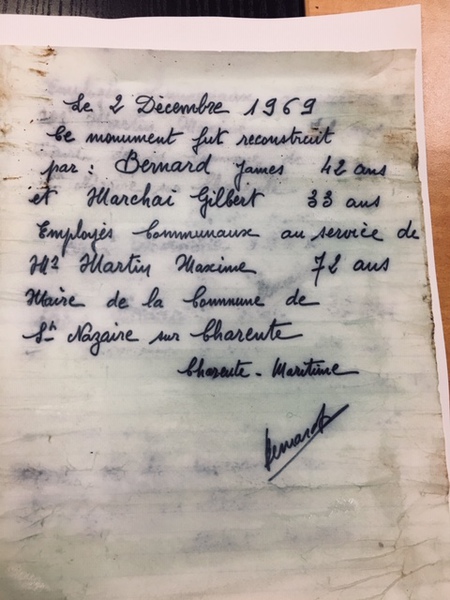 Le 2 Décembre 1969
Ce monument fut reconstruit
par : Bernard James 42 ans
et Marchai Gilbert 33 ans
Employés Communaux au service de
Mr Martin Maxime 72 ans
Maire de la Commune de
St Nazaire sur Charente
Charente - Maritime
Bernard